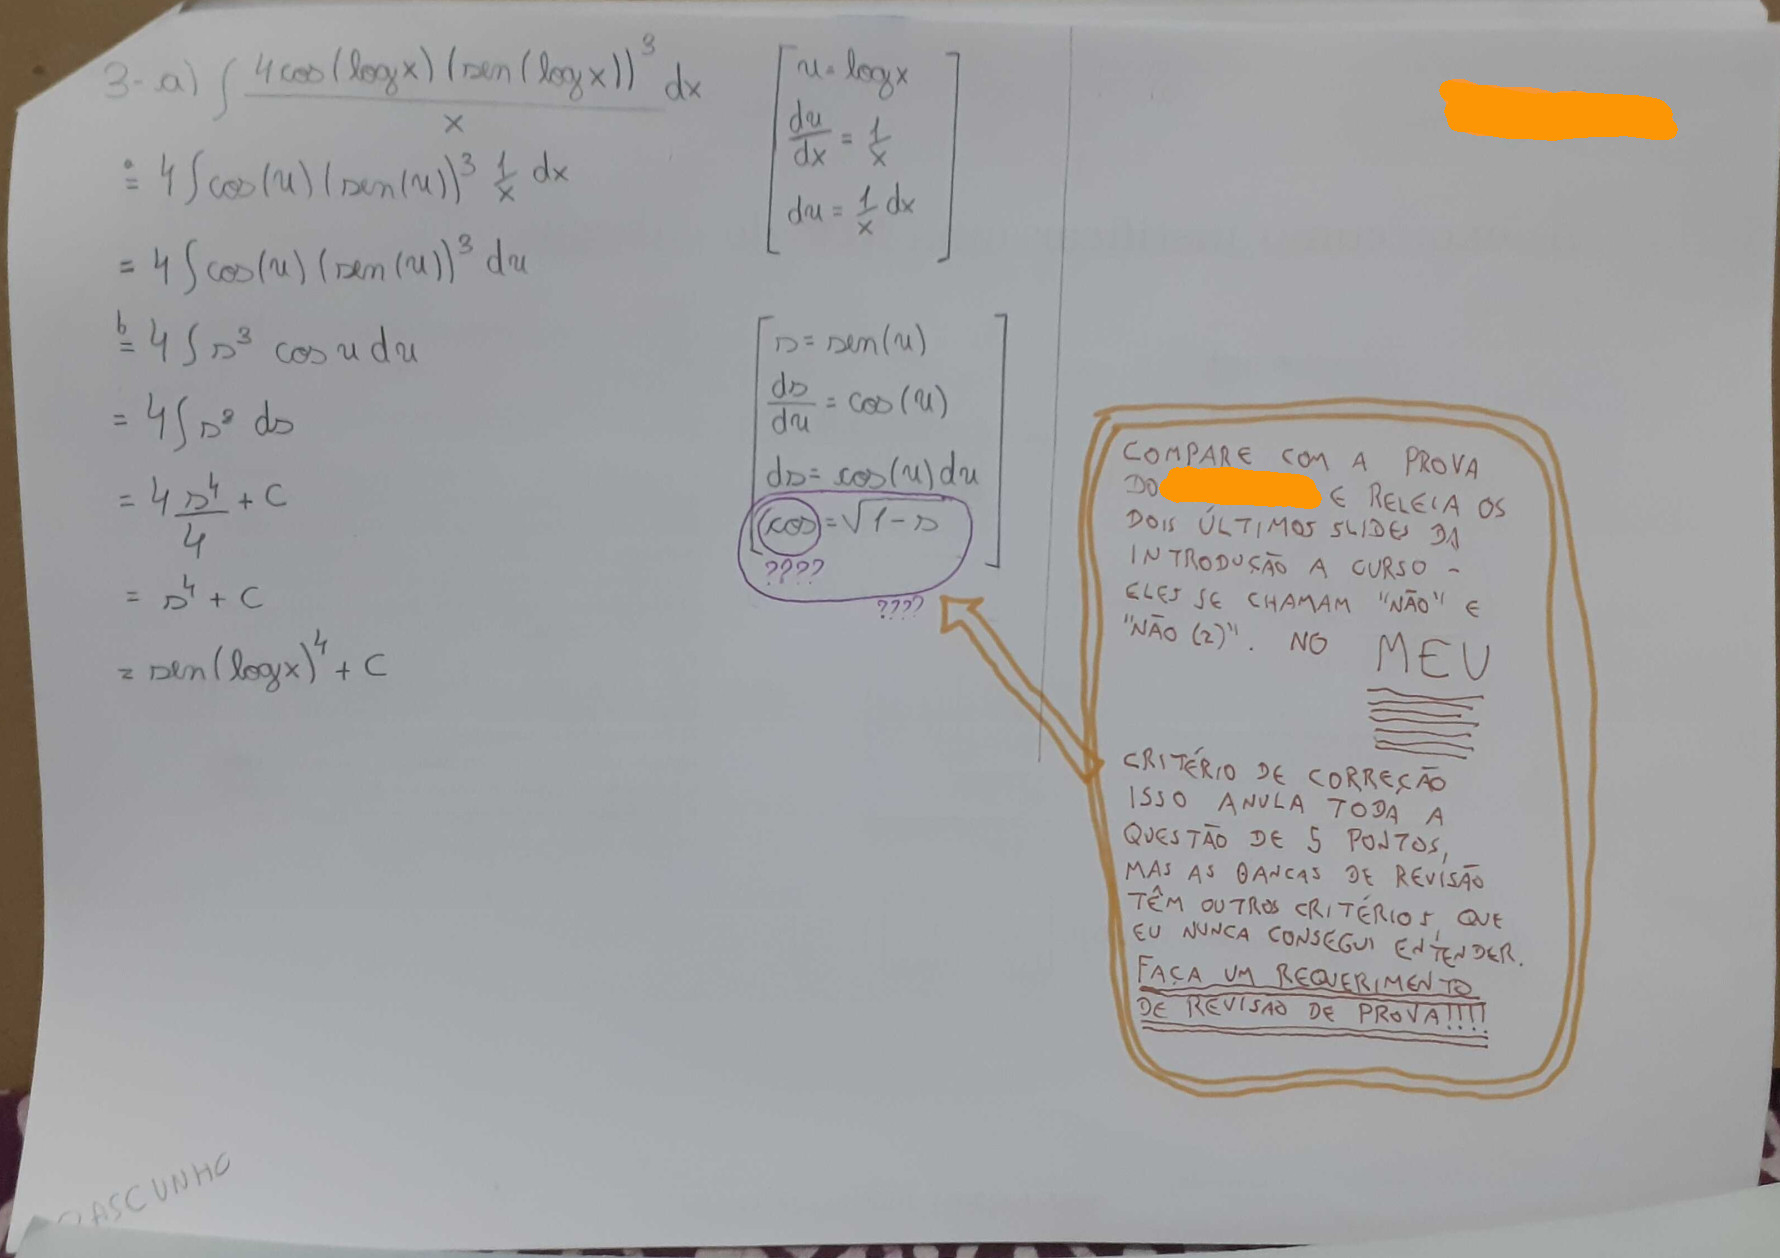 3-a) ∫ 4cos(logx)(sen(logx))³ / x dx
a= 4∫cos(u)(sen(u))³ 1/x dx
= 4∫cos(u)(sen(u))³ du
b= 4∫s³ cos u du
= 4∫s³ ds
= 4 s⁴/4 + C
= s⁴ + C
= sen(logx)⁴ + C
u = logx
du/dx = 1/x
du = 1/x dx
s = sen(u)
ds/du = cos(u)
ds = cos(u)du
cos = √1-s
????
????
COMPARE COM A PROVA
DO E RELEIA OS
DOIS ÚLTIMOS SLIDES DA
INTRODUÇÃO A CURSO -
ELES SE CHAMAM "NÃO" E
"NÃO (2)". NO MEU
CRITÉRIO DE CORREÇÃO
ISSO ANULA TODA A
QUESTÃO DE 5 PONTOS,
MAS AS BANCAS DE REVISÃO
TÊM OUTROS CRITÉRIOS, QUE
EU NUNCA CONSEGUI ENTENDER.
FAÇA UM REQUERIMENTO
DE REVISAO DE PROVA!!!!
RASCUNHO